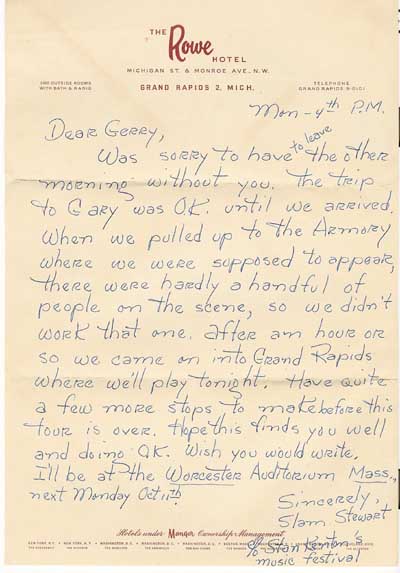 THE
Rowe
HOTEL
MICHIGAN ST. & MONROE AVE., N.W.
GRAND RAPIDS 2, MICH.
WITH BATH & RADIO
TELEPHONE
GRAND RAPIDS
Mon-4th P.M.
Dear Gerry,
Was sorry to have to leave the other
morning without you. The trip
to Gary was O.K. until we arrived.
When we pulled up to the Armory
where we were supposed to appear,
there were hardly a handful of
people on the scene, so we didn't
work that one. After an hour or
so we came on into Grand Rapids
where we'll play tonight. Have quite
a few more stops to make before this
tour is over. Hope this finds you well
and doing OK. Wish you would write.
I'll be at the Worcester Auditorium Mass.,
next Monday Oct 11th
Sincerely,
Slam Stewart
Hotels under Manger Ownership-Management
c/o Stan Kenton's
music festival